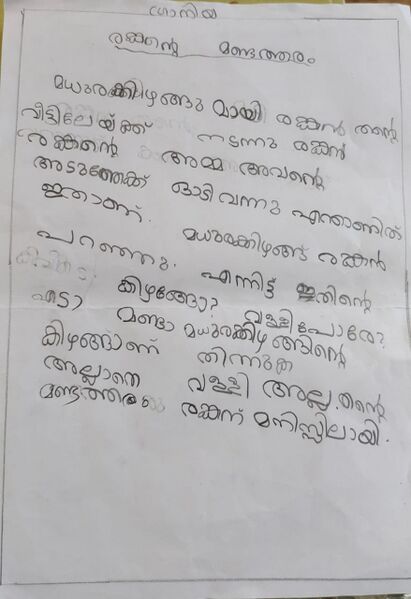 ശാനിയ
രങ്കന്റെ മണ്ടത്തരം
മധുരക്കിഴങ്ങു മായി രങ്കൻ തന്റെ
വീട്ടിലേയ്ക്ക് നടന്നു രങ്കൻ
രങ്കന്റെ അമ്മ അവന്റെ
അടുത്തേക്ക് ഓടി വന്നു എന്താണിത്
ഇതാണ്. മധുരക്കിഴങ്ങ് രങ്കൻ
പറഞ്ഞു. എന്നിട്ട് ഇതിന്റെ
കിഴങ്ങോ? വള്ളിപോരേ?
എടാ മണ്ടാ മധുരക്കിഴങ്ങിന്റെ
കിഴങ്ങാണ് തിന്നുക
അല്ലാതെ വള്ളി അല്ല. തന്റെ
മണ്ടത്തരം രങ്കന് മനിസ്സിലായി.